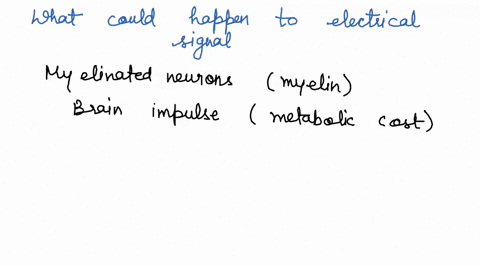 What could happen to electrical
signal
Myelinated neurons (myelin)
Brain impulse (metabolic cost)